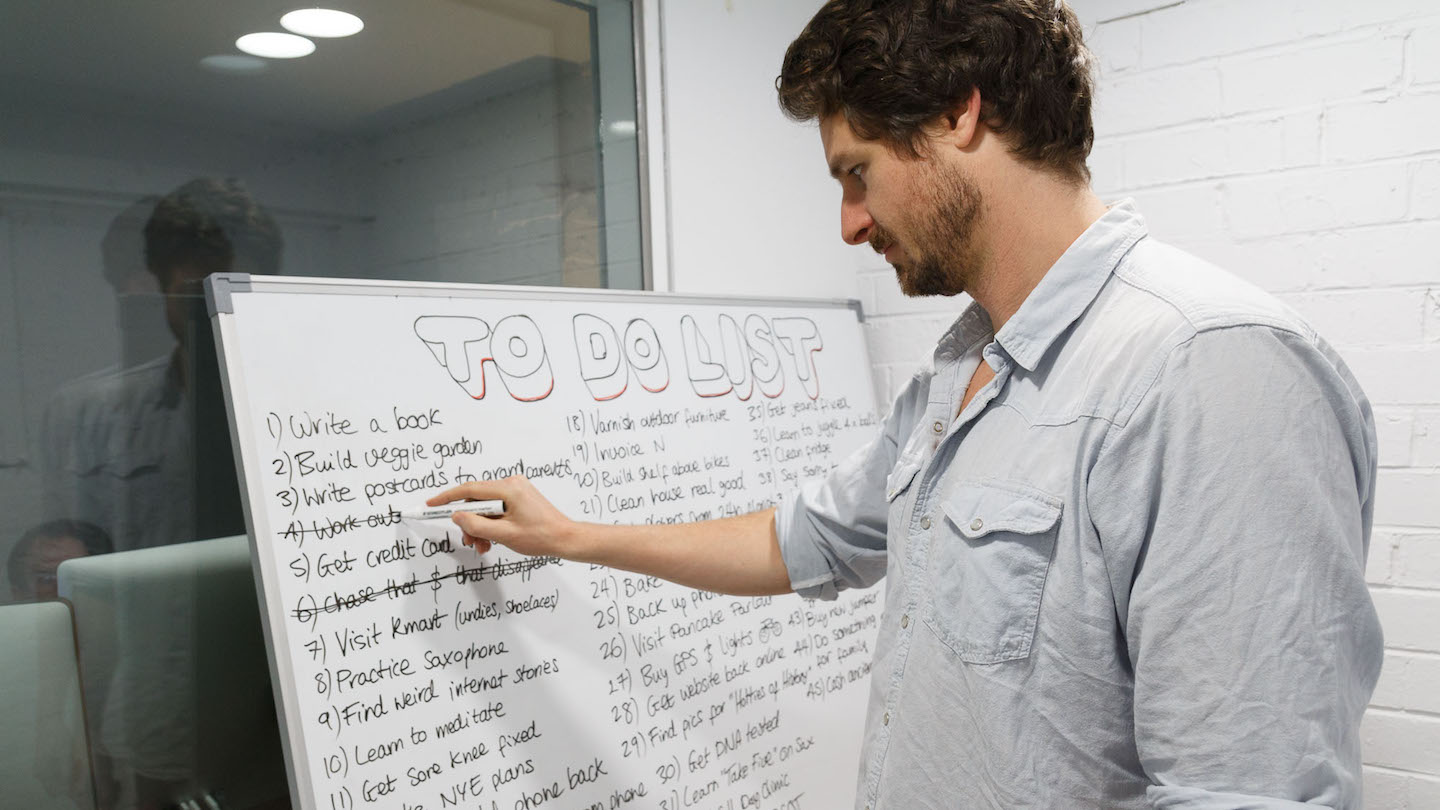 TO DO LIST
1) Write a book
2) Build veggie garden
3) Write postcards to grandparents
4) Work out
5) Get credit card
6) Chase that & that disappeared
7) Visit Kmart (undies, shoelaces)
8) Practice Saxophone
9) Find weird internet stories
10) Learn to meditate
11) Get Sore Knee fixed
NYE plans
phone back
phone
18) Varnish outdoor furniture
19) Invoice N
20) Build shelf above bikes
21) Clean house real good
from 24h
24) Bake
25) Back up
26) Visit Pancake Parlour
27) Buy GPS & lights
28) Get website back online
29) Find pics for "Hotties of History" for family
30) Get DNA tested
31) Learn "Take Five" on Sax
Dog Clinic
35) Get jeans fixed
36) Learn to juggle 4 x balls
37) Clean fridge
38) Say Sorry
43) Buy new jumper
44) Do something
45) Cash